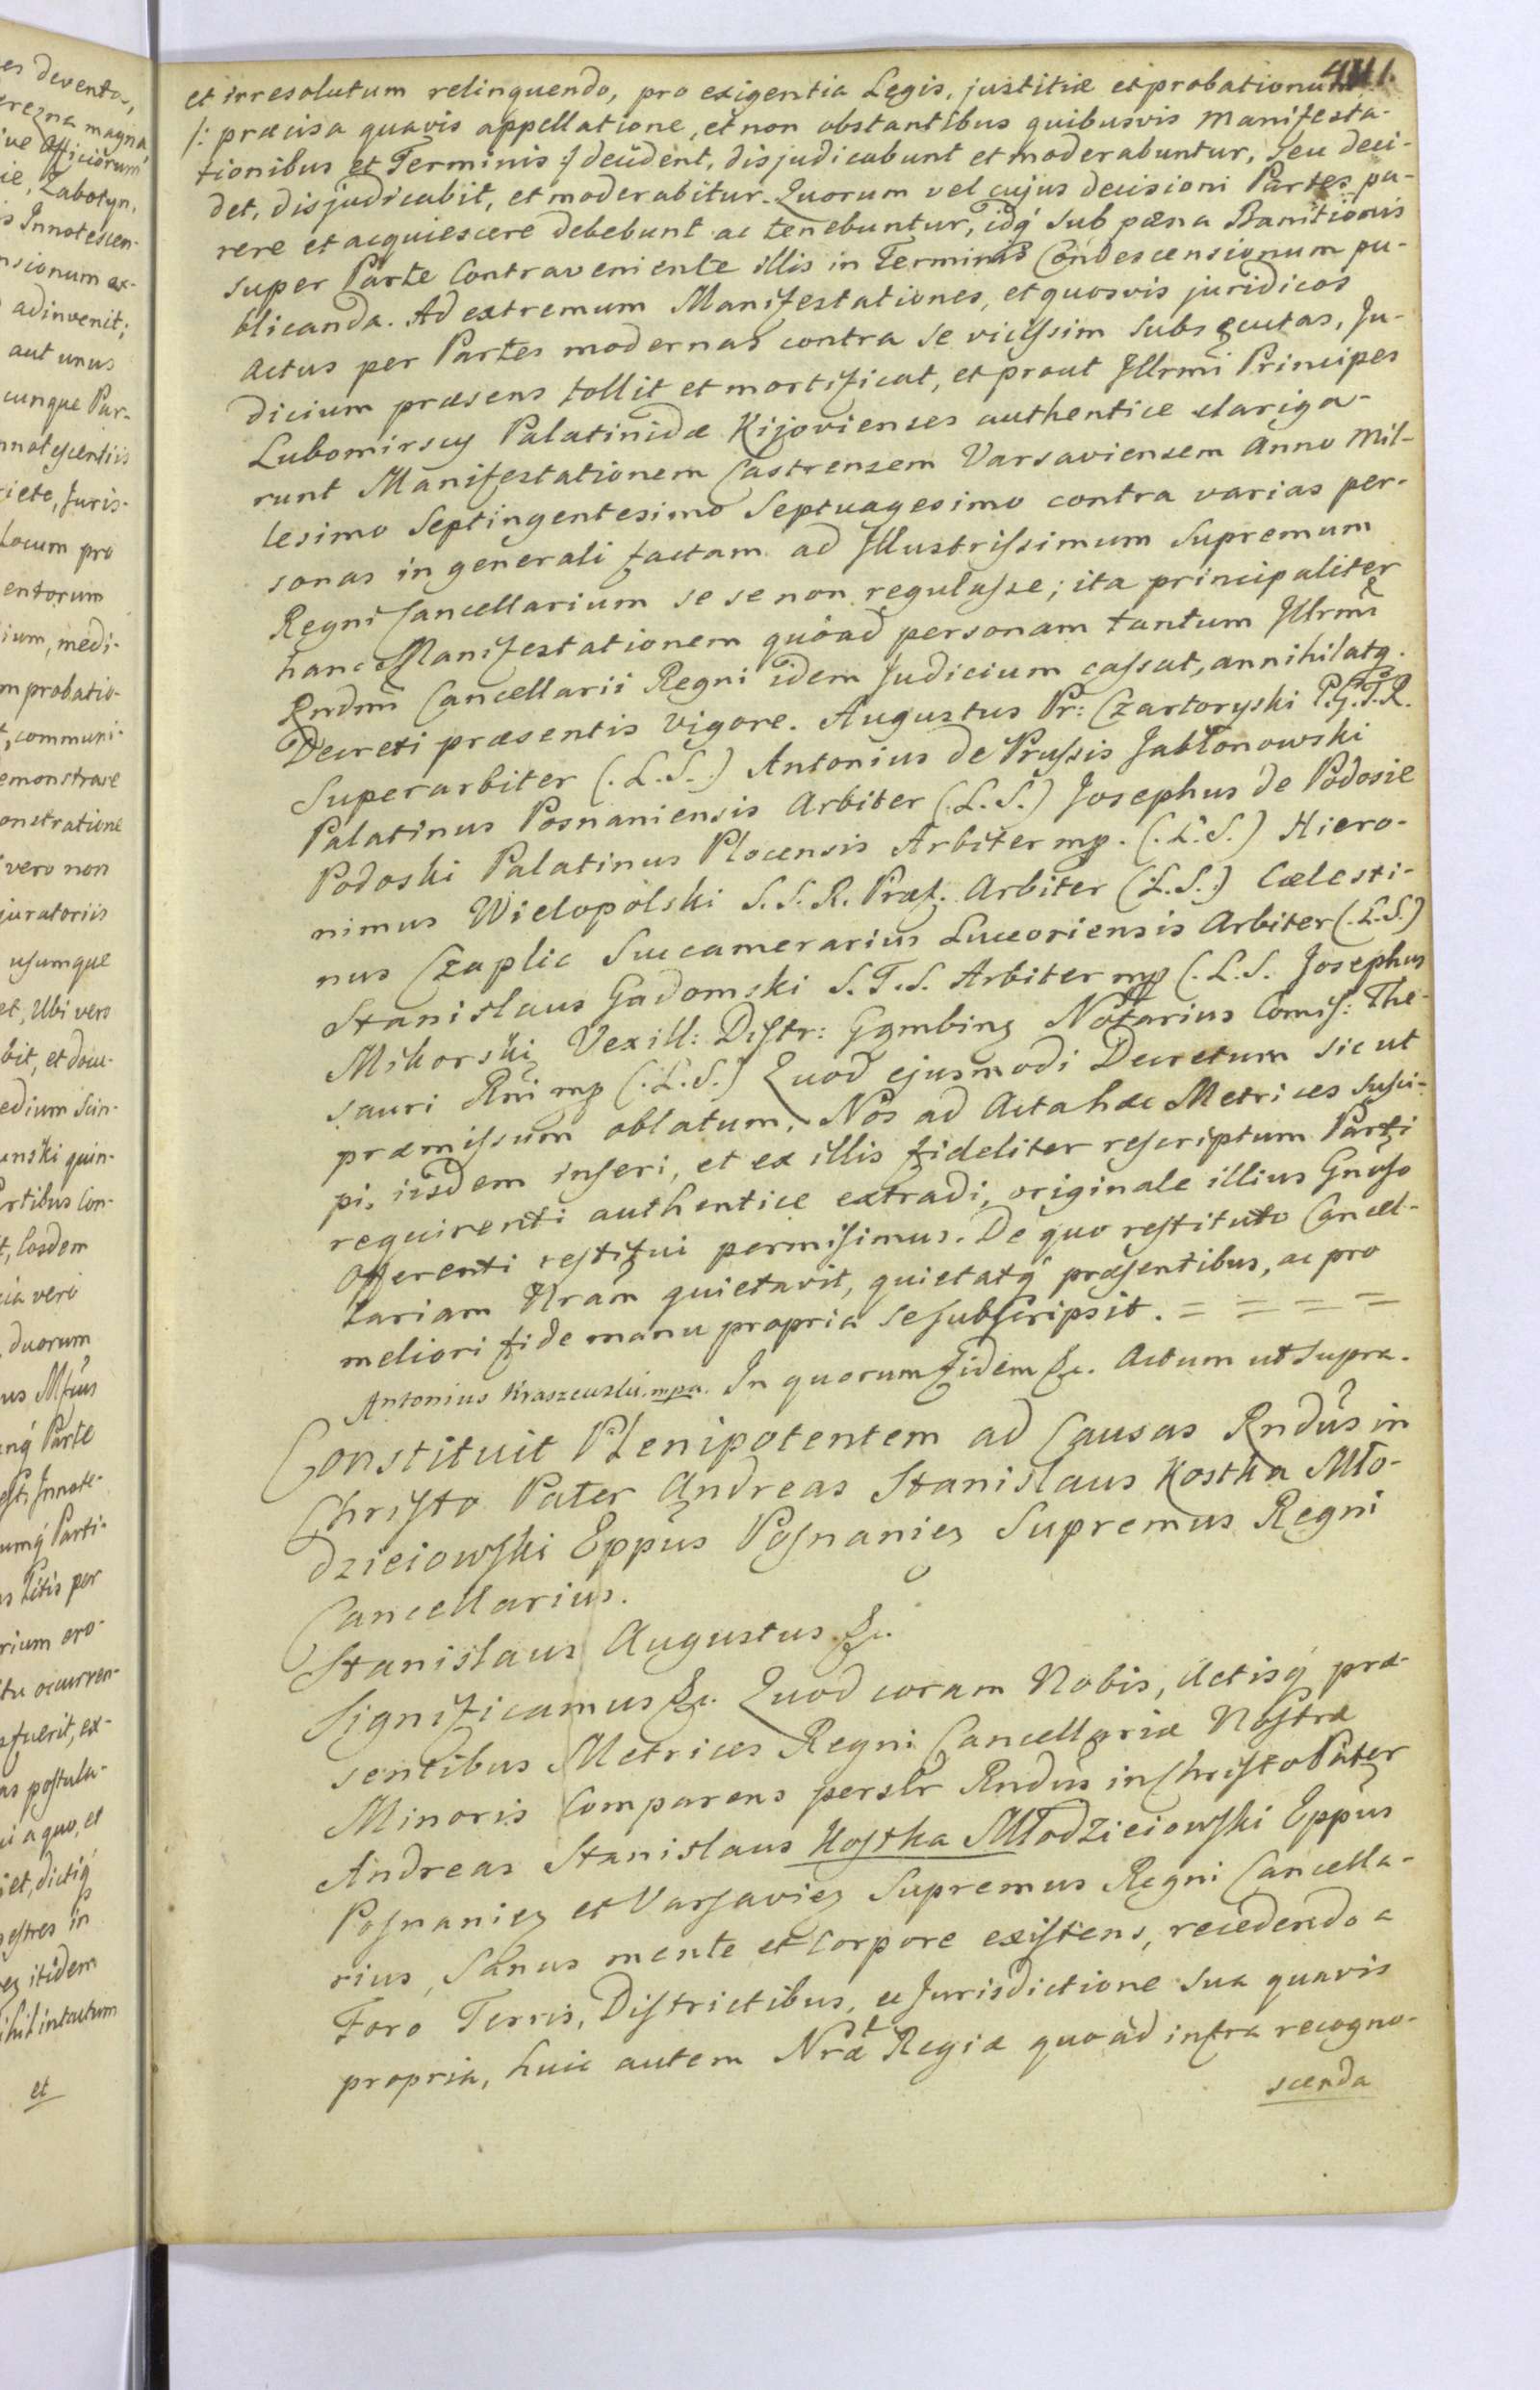 411.
et irresolutum relinquendo, pro exigentia Legis, justitiæ et probationum
/: præcisa quavis appellatione, et non obstantibus quibusvis Manifesta-
tionibus et Terminis :/ decident, disjudicabunt et moderabuntur, seu deci-
det, disjudicabit, et moderabitur. Quorum vel cujus decisioni Partes pa-
rere et acquiescere debebunt ac tenebuntur, idq́ sub pæna Banitionis
super Parte Contraveniente illis in Terminis Condescensionum pu-
blicanda. Ad extremum Manifestationes, et quosvis juridicos
Actus per Partes modernas contra se vicissim subsecutas, Ju-
dicium præsens tollit et mortificat, et prout Jllrmi Principes
Lubomirscy Palatinidæ Kijovienses authentice clariga-
runt Manifestationem Castrensem Varsaviensem Anno Mil-
lesimo Septingentesimo Septuagesimo contra varias per-
sonas in generali factam ad Jllustrissimum Supremum
Regni Cancellarium se se non regulasse; ita principaliter
hance Manifestationem quoad personam tantum Jllrmi
Rndmi Cancellarii Regni idem Judicium cassat, annihilatq.
Decreti præsentis vigore. Augustus Pr: Czartoryski P.G.T.R.
Superarbiter (.L.S.) Antonius de Prussis Jabłonowski
Palatinus Posnaniensis Arbiter (.L.S.) Josephus de Podosie
Podoski Palatinus Plocensis Arbiter mp. (.L.S.) Hiero-
nimus Wielopolski S.S.R. Præf. Arbiter (.L.S.) Cælesti-
nus Czaplic Succamerarius Luceoriensis Arbiter (.L.S.)
Stanislaus Gadomski S.T.S. Arbiter mp (.L.S. Josephus
Mikorski Vexill: Distr: Gąmbinȝ Notarius Comis: The-
sauri Rni mp (.L.S.) Quod ejusmodi Decretum sic ut
præmissum oblatum, Nos ad Acta hæc Metrices susci-
pi, iisdem inseri, et ex illis fideliter rescriptum Parti
requirenti authentice extradi, originale illius Gnoso
Offerenti restitui permisimus. De quo restituto Cancel-
lariam Nram quietavit, quietatq́ præsentibus, ac pro
meliori fide manu propria se subscripsit. = = = =
Antonius Kraszewski. mpa. In quorum Fidem &c. Actum ut supra.
Constituit Plenipotentem ad Causas Rndus in
Christo Pater Andreas Stanislaus Kostka Mło-
dzieiowski Eppus Posnanieȝ Supremus Regni
Cancellarius.
Stanislaus Augustus &c.
Significamus &c. Quod coram Nobis, Actisq́ præ-
sentibus Metrices Regni Cancellariæ Nostræ
Minoris Comparens persłr Rndus in Christo Pater
Andreas Stanislaus Kostka Młodzieiowski Eppus
Posnanieȝ et Varsavieȝ Supremus Regni Cancella-
rius, Sanus mente et corpore existens, recedendo a
Foro Terris, Districtibus, et Jurisdictione sua quavis
propria, huic autem Nræ Regiæ quoad infra recogno-
scenda
es devento,
magna
Officiorum
Zabotyn,
Innotescen-
nsionum ex-
adinvenit;
aut unus
cunque Par-
nnotescentiis
Juris-
Locum pro
entorum
ium, medi-
m probatio-
communi-
emonstrare
onstratione
vero non
juratoriis
usumque
et, Ubi vero
bit, et docu-
edium Scin-
anski quin-
rtibus Con-
Eosdem
cia vero
duorum
Parte
Innote-
umq́ Parti-
Litis per
rium ero-
tu ocurren-
fuerit, ex-
as postula-
a quo, et
iet, dictiq́
estres in
itidem
ihil intactum
et